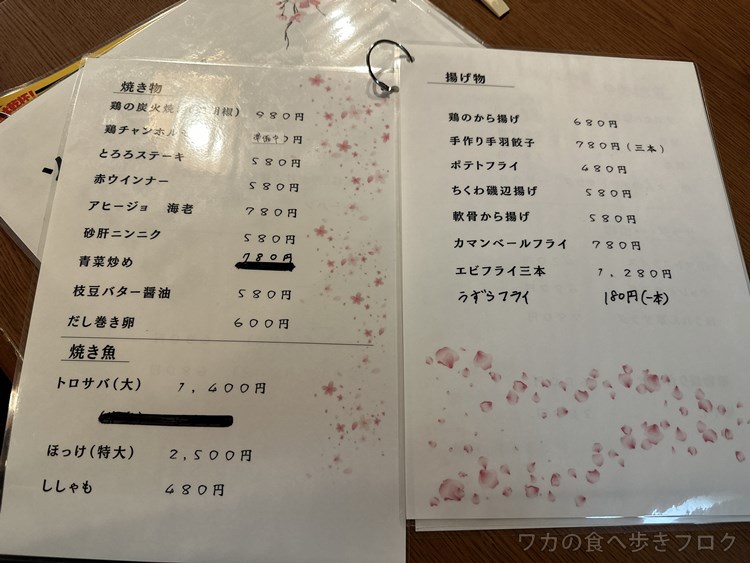 焼き物
鶏の炭火焼 胡椒) 980円
鶏チャンホル 準備中 円
とろろステーキ 580円
赤ウインナー 580円
アヒージョ 海老 780円
砂肝ニンニク 580円
青菜炒め 780円
枝豆バター醤油 580円
だし巻き卵 600円
焼き魚
トロサバ(大) 1,400円
ほっけ(特大) 2,500円
ししゃも 480円
揚げ物
鶏のから揚げ 680円
手作り手羽餃子 780円(三本)
ポテトフライ 480円
ちくわ磯辺揚げ 580円
軟骨から揚げ 580円
カマンベールフライ 780円
エビフライ三本 1,280円
うずらフライ 180円(一本)
ワカの食べ歩きブログ